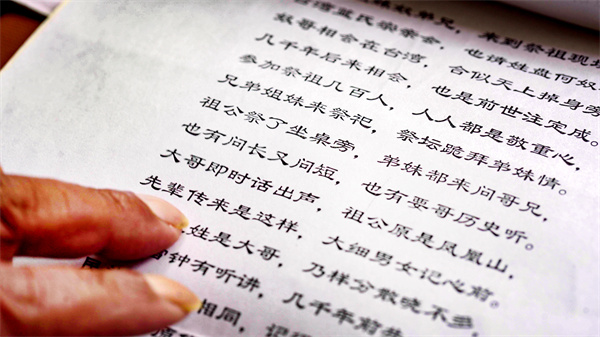 奴弟兄， 来到祭祖现场
台湾蓝氏宗亲会， 也请姓盘何奴
奴哥相会在台湾， 合似天上掉身旁
几千年后来相会， 也是前世注定成。
参加祭祖几百人， 人人都是敬重心，
兄弟姐妹来祭祀， 祭坛跪拜弟妹情。
祖公祭了坐桌旁， 弟妹都来问哥兄，
也有问长又问短， 也有要哥历史听。
大哥即时话出声， 祖公原是凤凰山，
先辈传来是这样， 大细男女记心前。
姓是大哥， 乃样分散晓不多，
钟有听讲， 几千年前
相同， 记